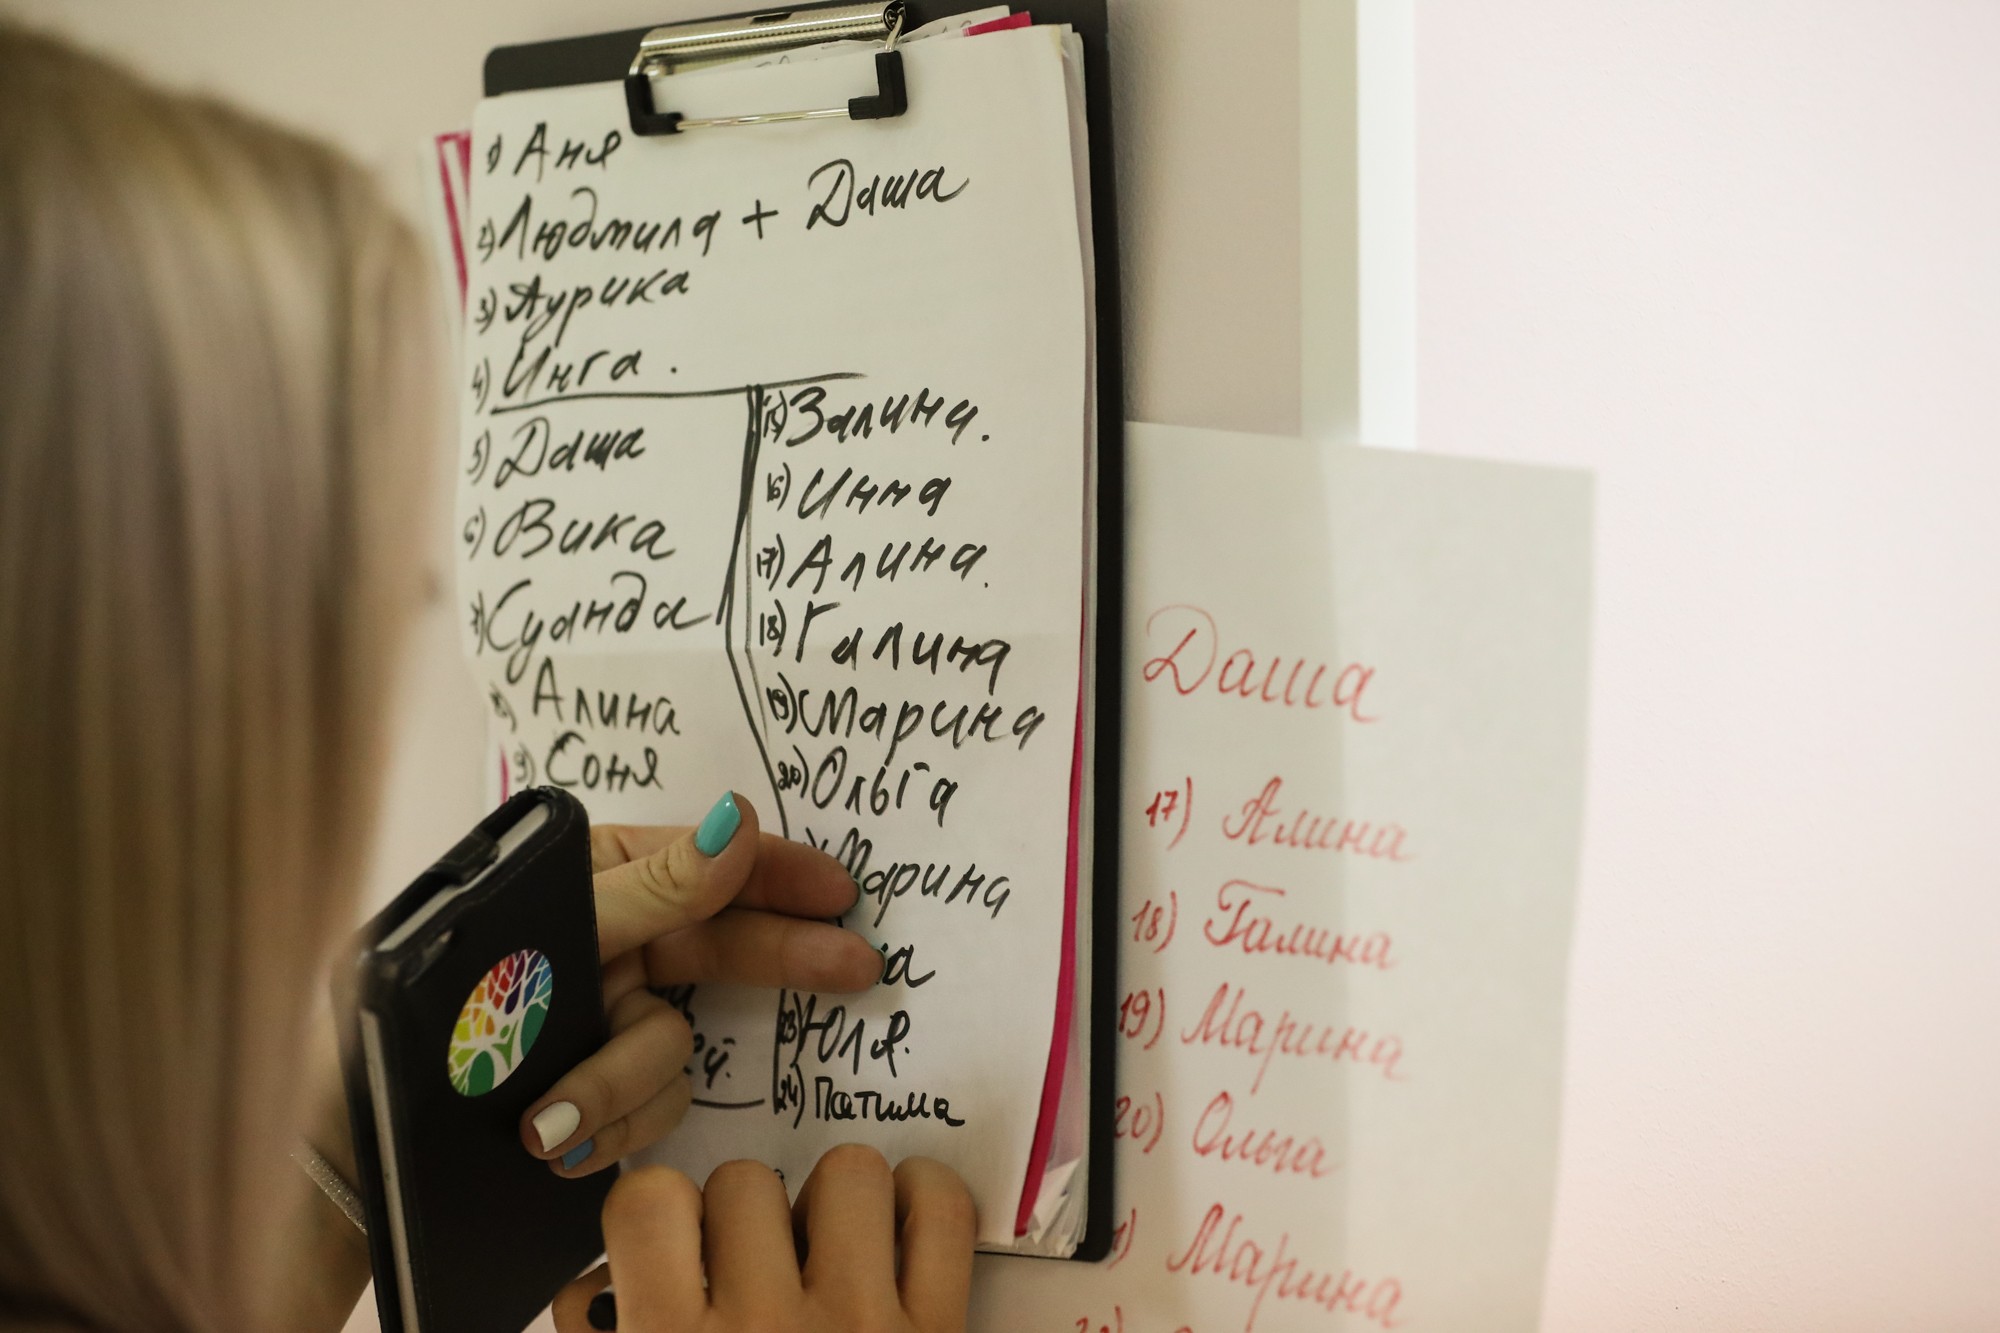 1) Аня
2) Людмила + Даша
3) Аурика
4) Инга.
5) Даша
6) Вика
7) Суанда
8) Алина
9) Соня
15) Залина.
16) Инна
17) Алина.
18) Галина
19) Марина
20) Ольга
Марина
23) Юля.
24) Патима
Даша
17) Алина
18) Галина
19) Марина
20) Ольга
1) Марина